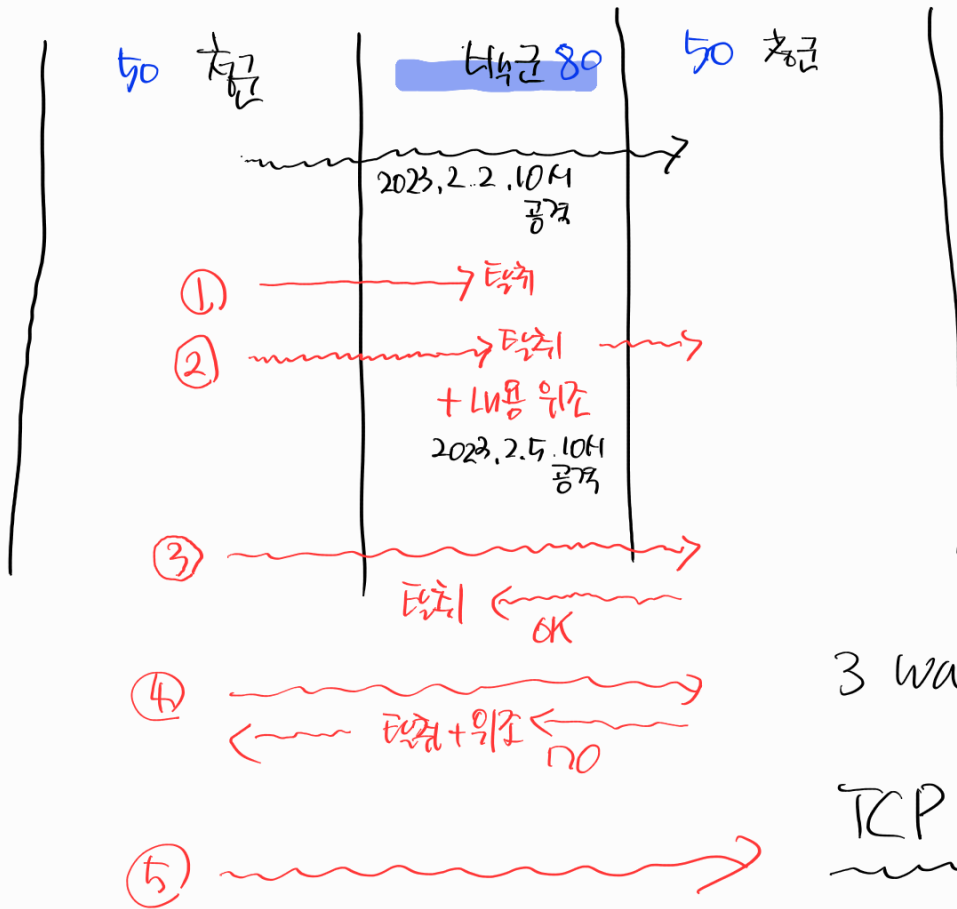 50 청군
백군 80
50 청군
2023.2.2.10시
공격
① 탈취
② 탈취
+ 내용 위조
2023.2.5.10시
공격
③
탈취
OK
④
탈취+위조
no
3 wa
TCP
⑤